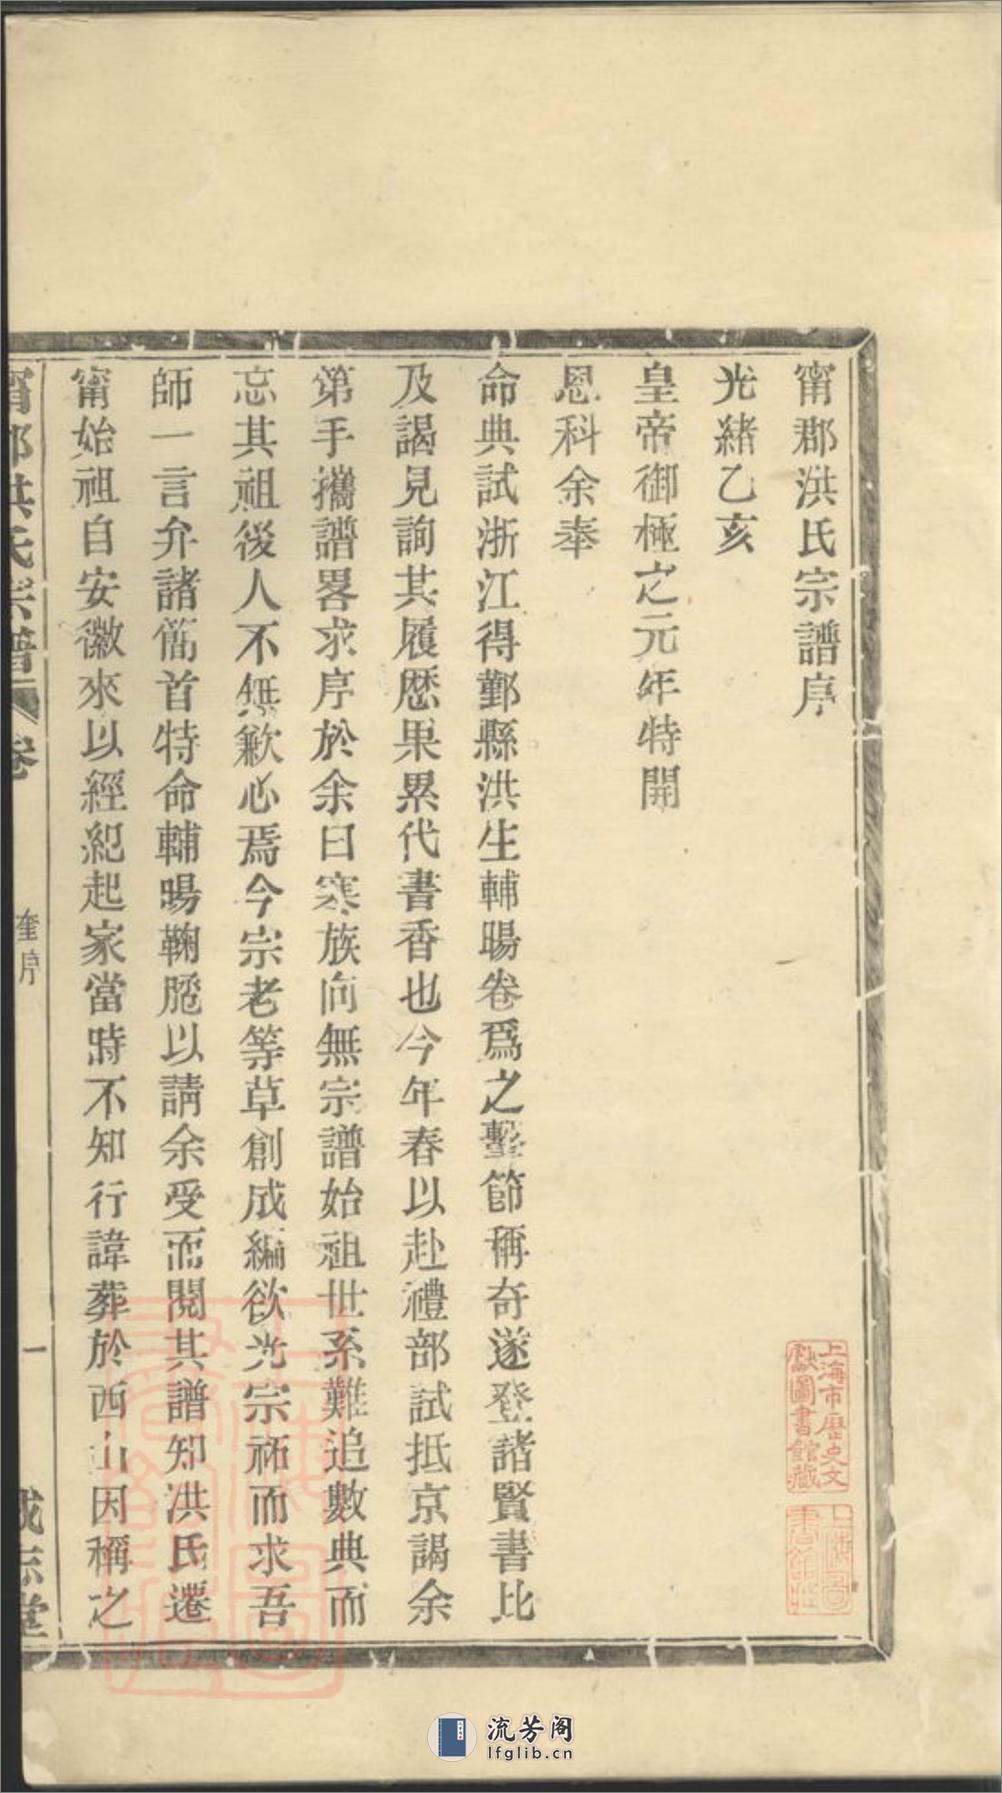 甯郡洪氏宗譜序
光緒乙亥
皇帝御極之元年特開
恩科余奉
命典試浙江得鄞縣洪生輔暘卷爲之擊節稱奇遂登諸賢書比
及謁見詢其履歷果累代書香也今年春以赴禮部試抵京謁余
第手攜譜畧求序於余曰寒族向無宗譜始祖世系難追數典而
忘其祖後人不無歉心焉今宗老等草創成編欲光宗祏而求吾
師一言弁諸簡首特命輔暘鞠跽以請余受而閱其譜知洪氏遷
甯始祖自安徽來以經紀起家當時不知行諱葬於西山因稱之
甯郡洪氏宗譜 卷 奎序 一 成志堂
上海市歷史文
獻圖書館藏
上海圖
書館藏
流芳阁
lfglib.cn